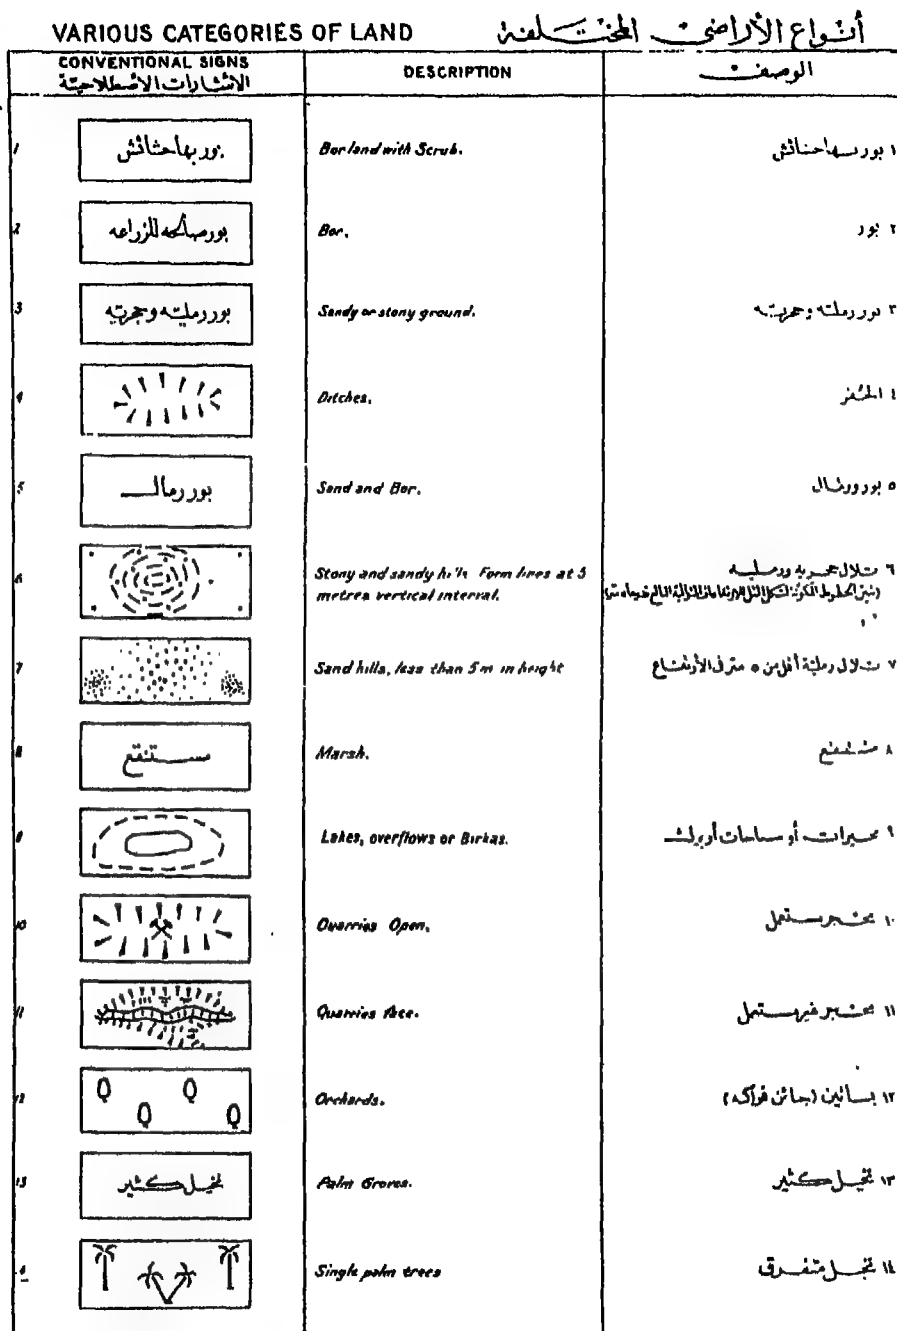 VARIOUS CATEGORIES OF LAND أنواع الأراضى المختلفة
CONVENTIONAL SIGNS DESCRIPTION الوصف
الاشارات الاصطلاحية
1 بور بها حشائش Bor land with Scrub. ١ بور بها حشائش
2 بور صالحه للزراعه Bor. ٢ بور
3 بور رمليه وحجريه Sandy or stony ground. ٣ بور رملية وحجرية
4 Ditches. ٤ الحفر
5 بور رمال Sand and Bor. ٥ بور ورمال
6 Stony and sandy hills Form lines at 5 ٦ تلال حجريه ورمليه
metres vertical interval.
7 Sand hills, less than 5m in height ٧ تلال رملية أقل من ٥ متر فى الأرتفاع
8 مستنقع Marsh. ٨ مستنقع
9 Lakes, overflows or Birkas. ٩ بحيرات أو سياحات أو برك
10 Quarries Open. ١٠ محجر مستعمل
11 Quarries Face. ١١ محجر غير مستعمل
12 Orchards. ١٢ بساتين (جنائن فواكه)
13 نخيل كثير Palm Groves. ١٣ نخيل كثير
Single palm trees ١٤ نخيل متفرق